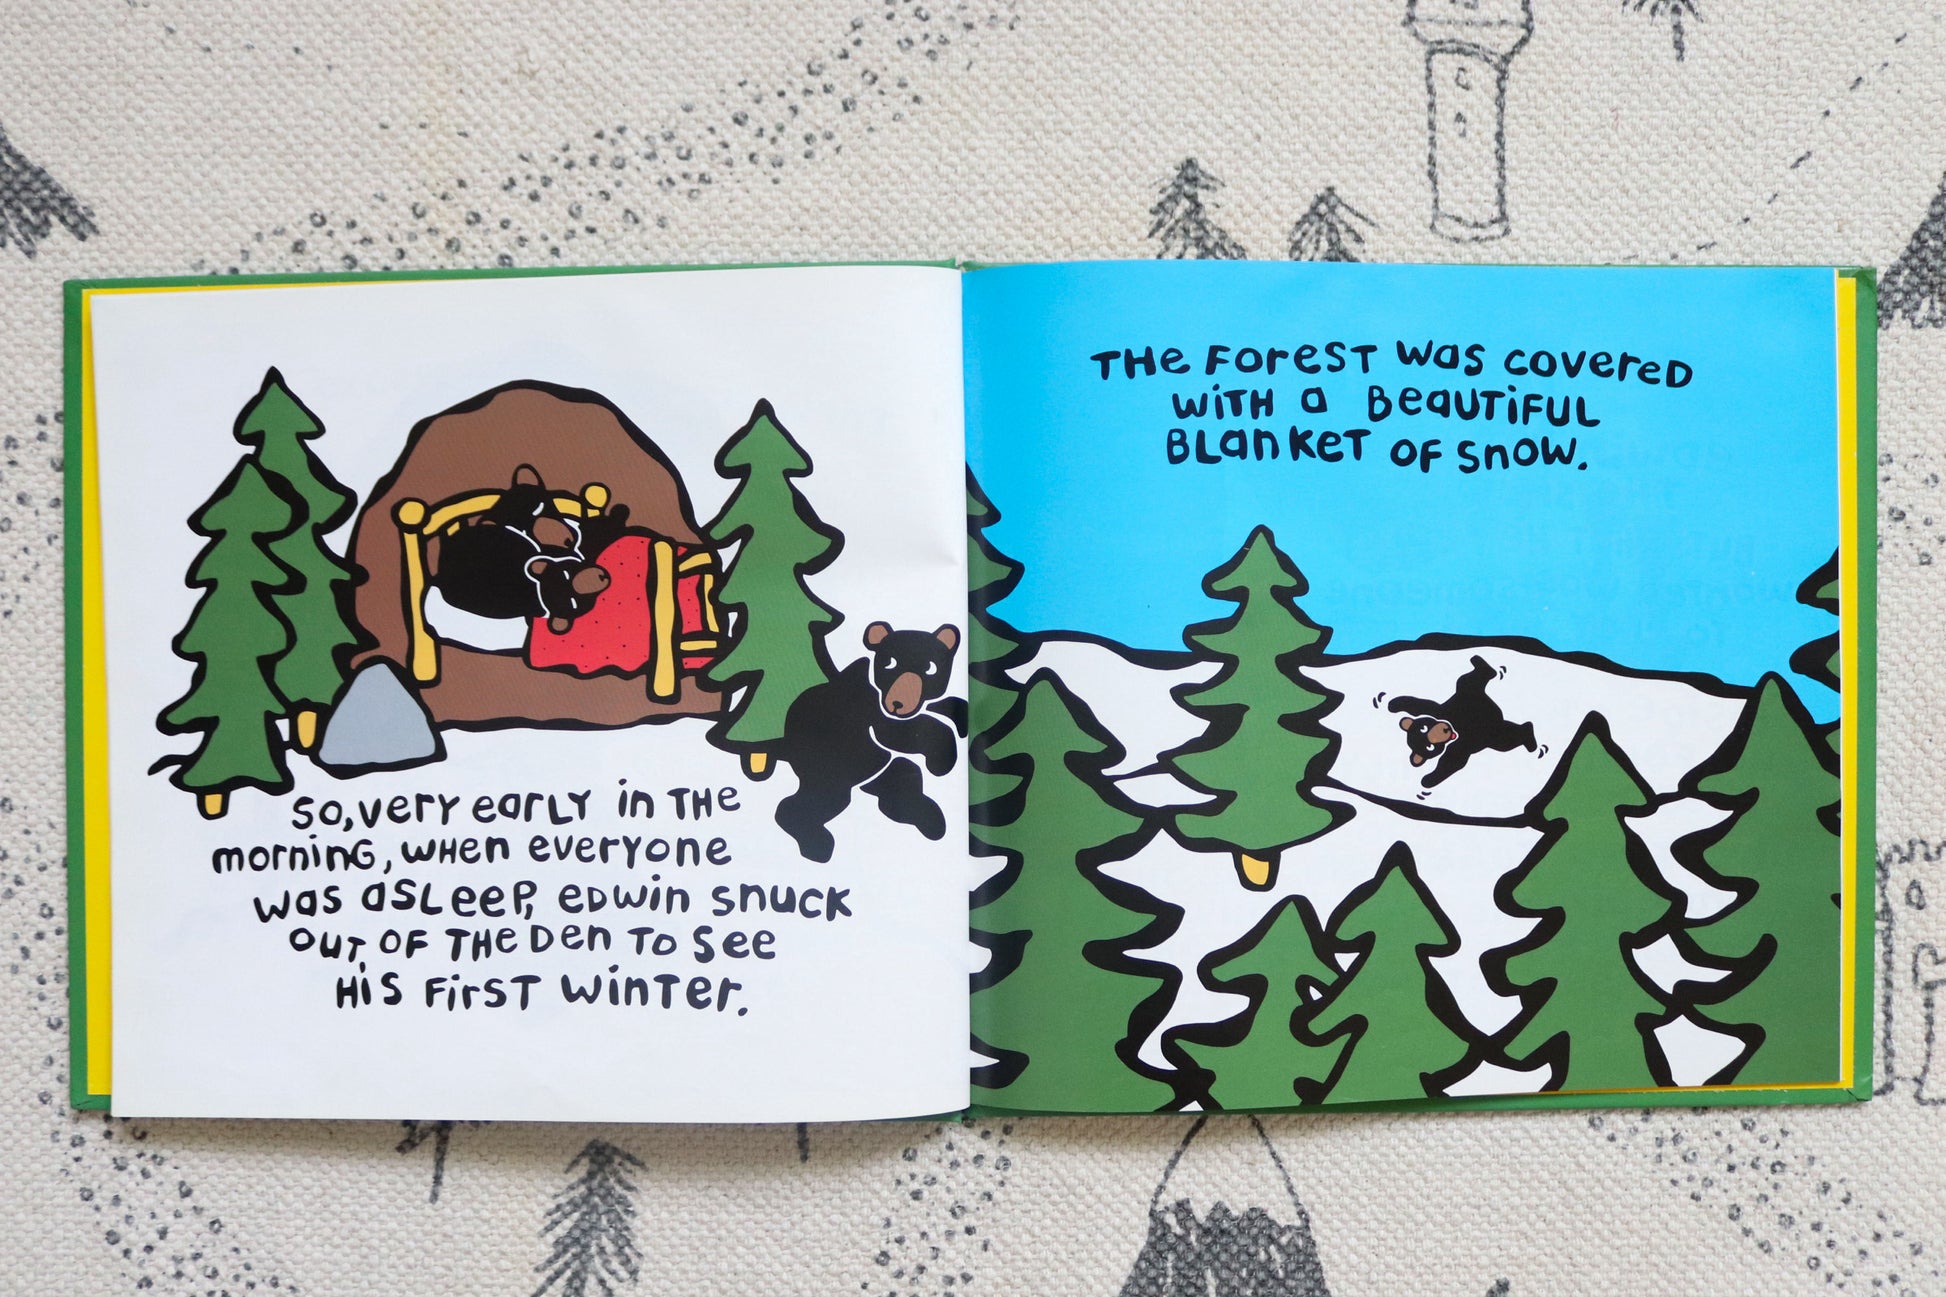 So, very early in the
morning, when everyone
was asleep, Edwin snuck
out of the den to see
his first winter.
The forest was covered
with a beautiful
blanket of snow.